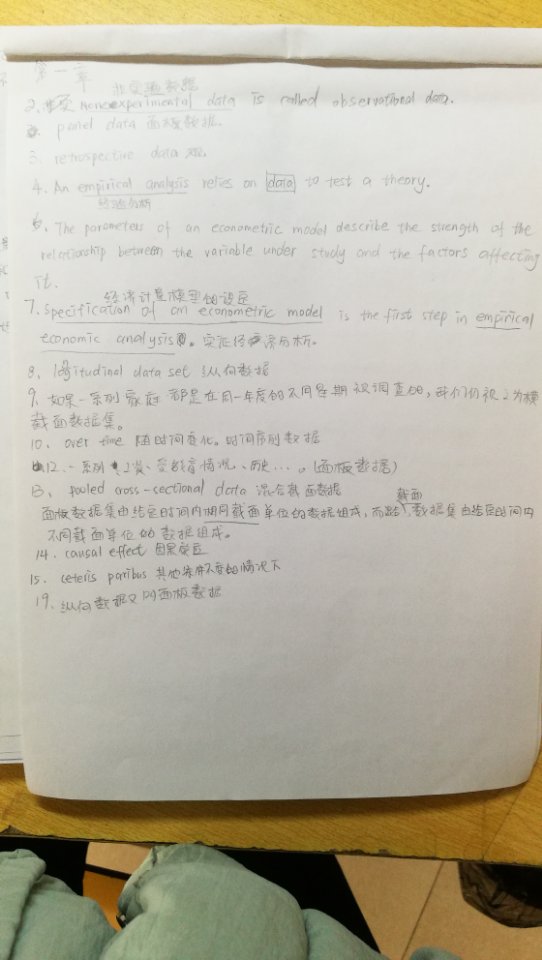 第一章
非实验数据
2. Nonexperimental data is called observational data.
panel data 面板数据.
3. retrospective data
4. An empirical analysis relies on data to test a theory.
经验分析
6. The parameters of an econometric model describe the strength of the
relationship between the variable under study and the factors affecting
it.
经济计量模型的设定
7. Specification of an econometric model is the first step in empirical
economic analysis. 实证经济分析.
8. longitudinal data set 纵向数据
9. 如果一系列家庭都是在同一年度的不同星期被调查的,我们仍视之为横
截面数据集。
10. over time 随时间变化。时间序列数据
12. 一系列 人、受教育情况、历史...。(面板数据)
13. pooled cross-sectional data 混合截面数据
截面
面板数据集由给定时间内相同截面单位的数据组成,而混合数据集由给定时间内
不同截面单位的数据组成。
14. causal effect 因果效应
15. ceteris paribus 其他条件不变的情况下
19. 纵向数据又叫面板数据